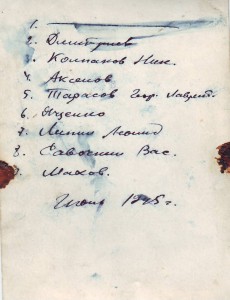 1.
2. Дмитриев
3. Колпаков Ник.
4. Аксенов
5. Тарасов Геор. Лаврент.
6. Яценко
7. Липин Леонид
8. Савоскин Вас.
9. Махов.
Июнь 1945 г.